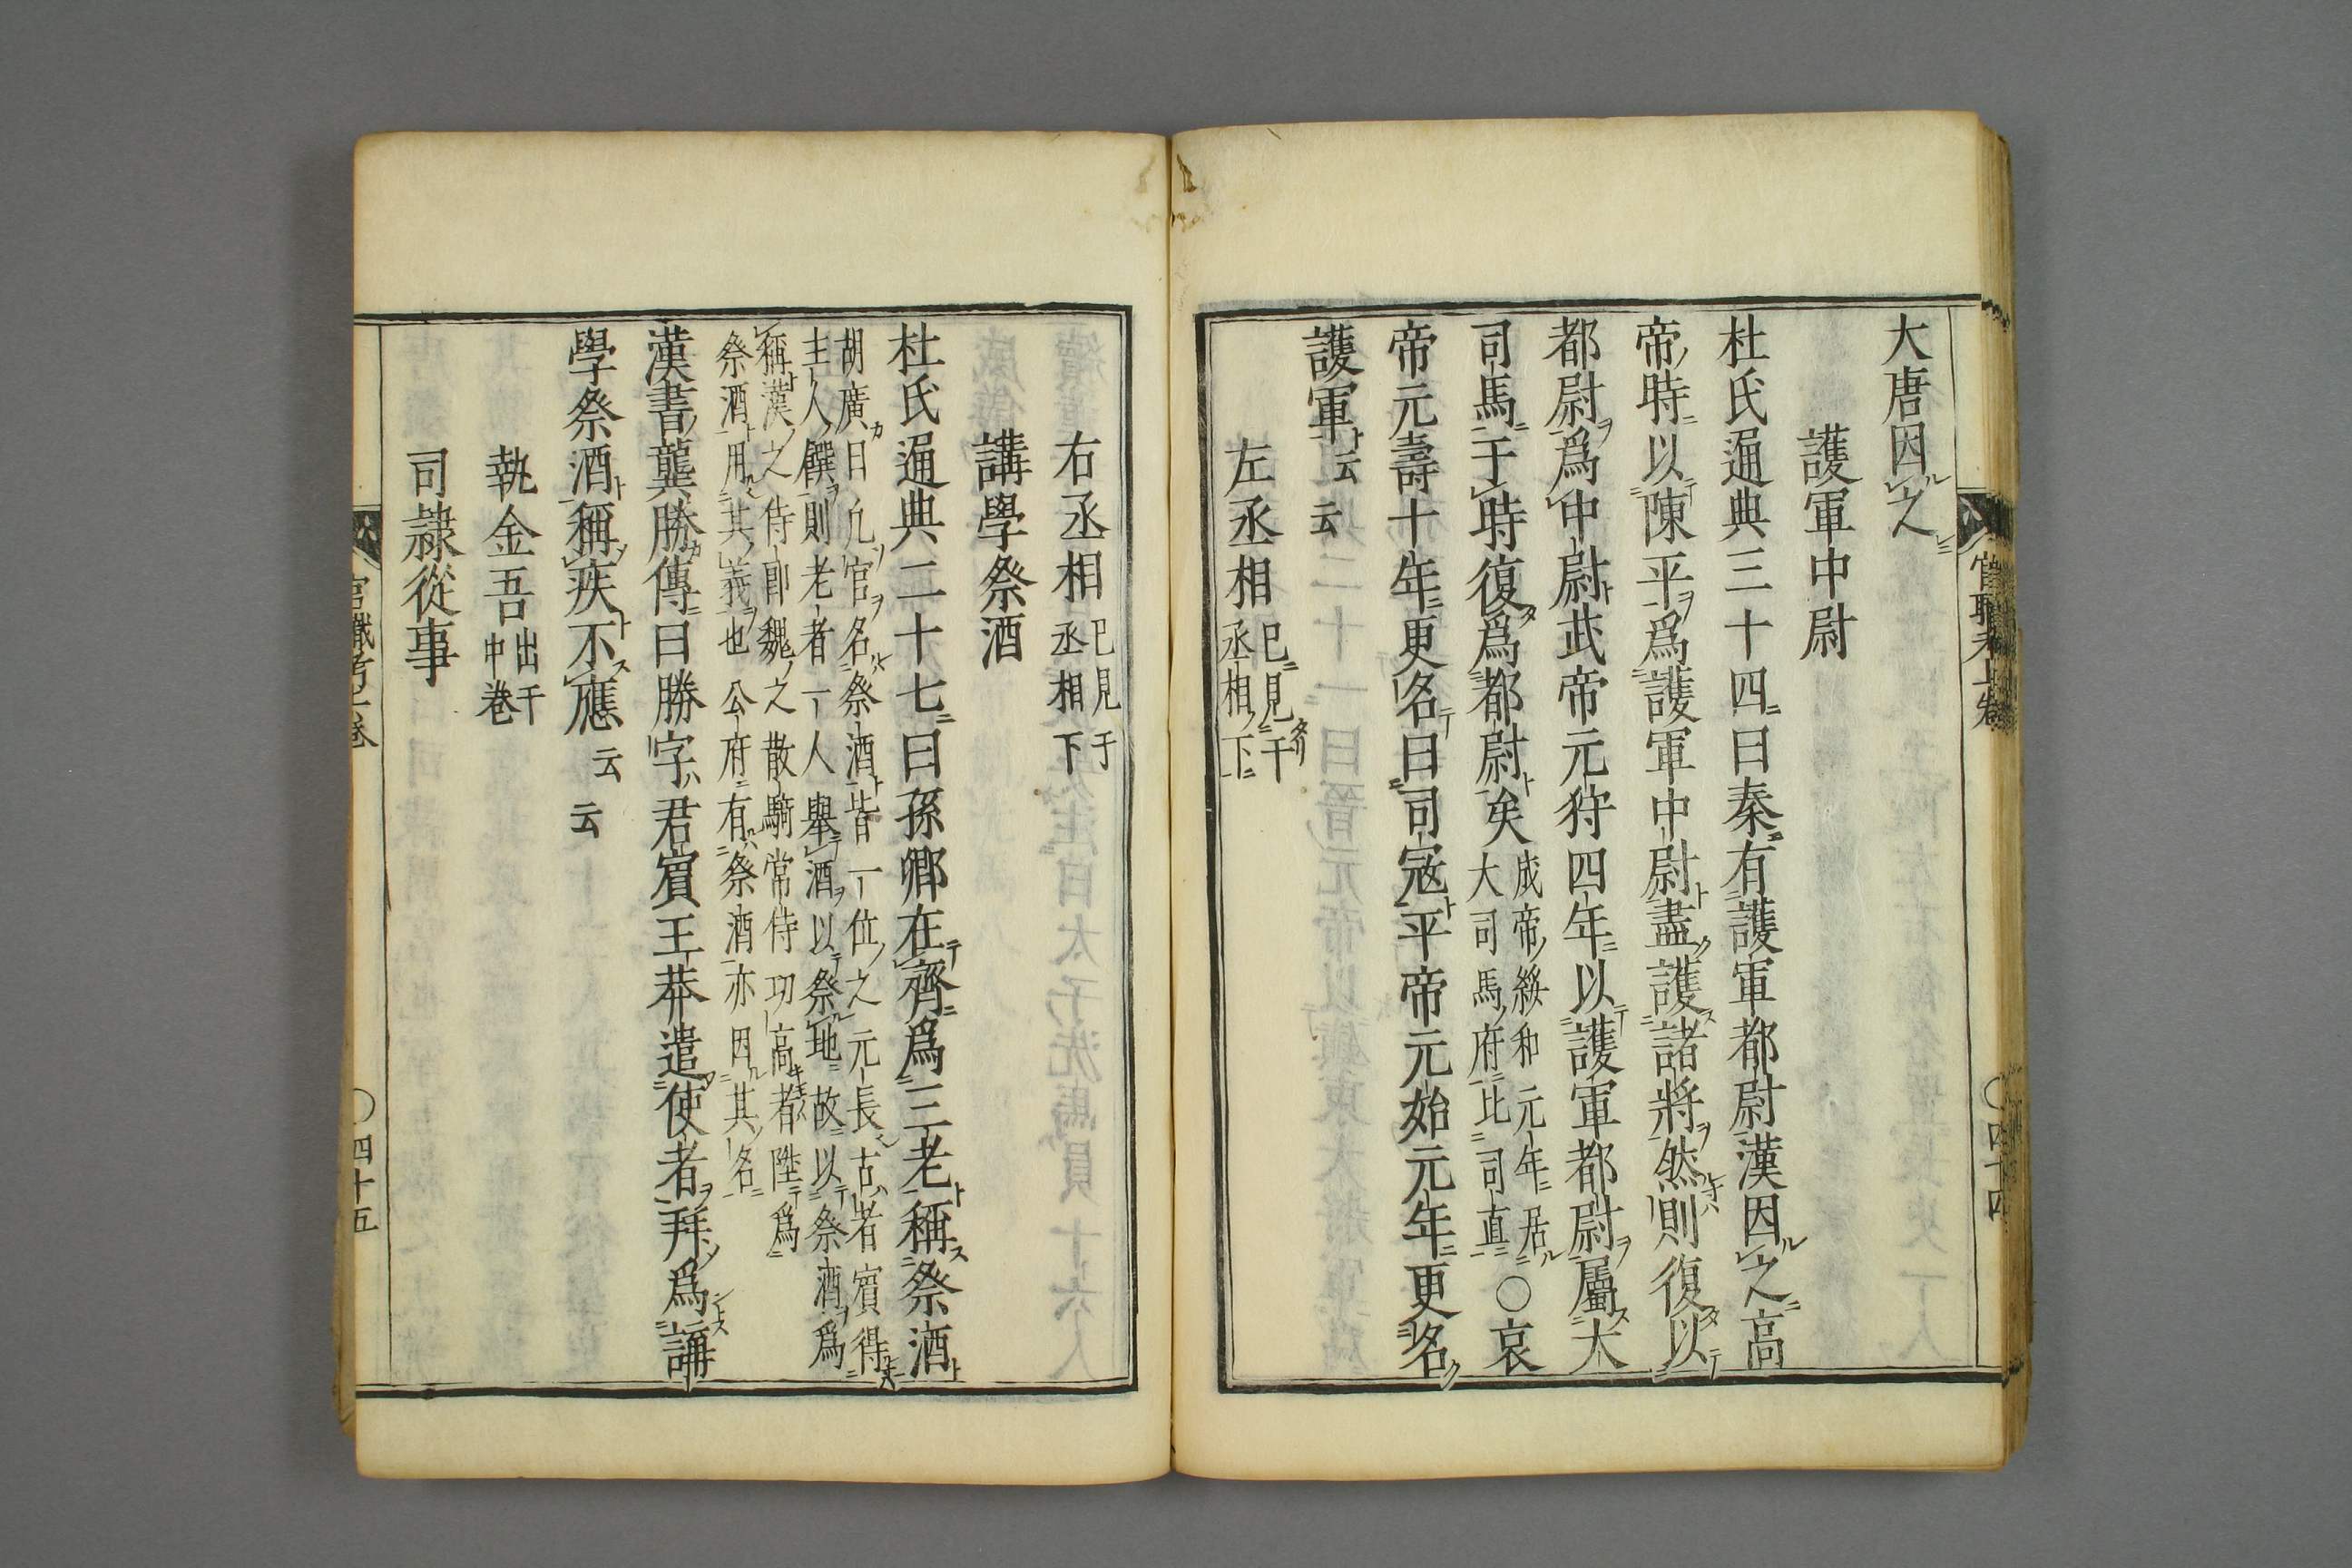 大唐因之
護軍中尉
杜氏通典三十四曰秦有護軍都尉漢因之高
帝時以陳平爲護軍中尉盡護諸將然則復以
都尉爲中尉武帝元狩四年以護軍都尉屬大
司馬于時復爲都尉矣成帝綏和元年居
大司馬府比司直○哀
帝元壽十年更名曰司寇平帝元始元年更名
護軍云云
左丞相巳見于
丞相下
右丞相巳見于
丞相下
講學祭酒
杜氏通典二十七曰孫卿在齊爲三老稱祭酒
胡廣曰凡官名祭酒皆一位之元長古者賓得
主人饌則老者一人舉酒以祭地故以祭酒爲
稱漢之侍中魏之散騎常侍功高者陞爲
祭酒用其義也公府有祭酒亦因其名
漢書龔勝傳曰勝字君賓王莽遣使者拜爲講
學祭酒稱疾不應云云
執金吾出于
中卷
司隸從事
四十五